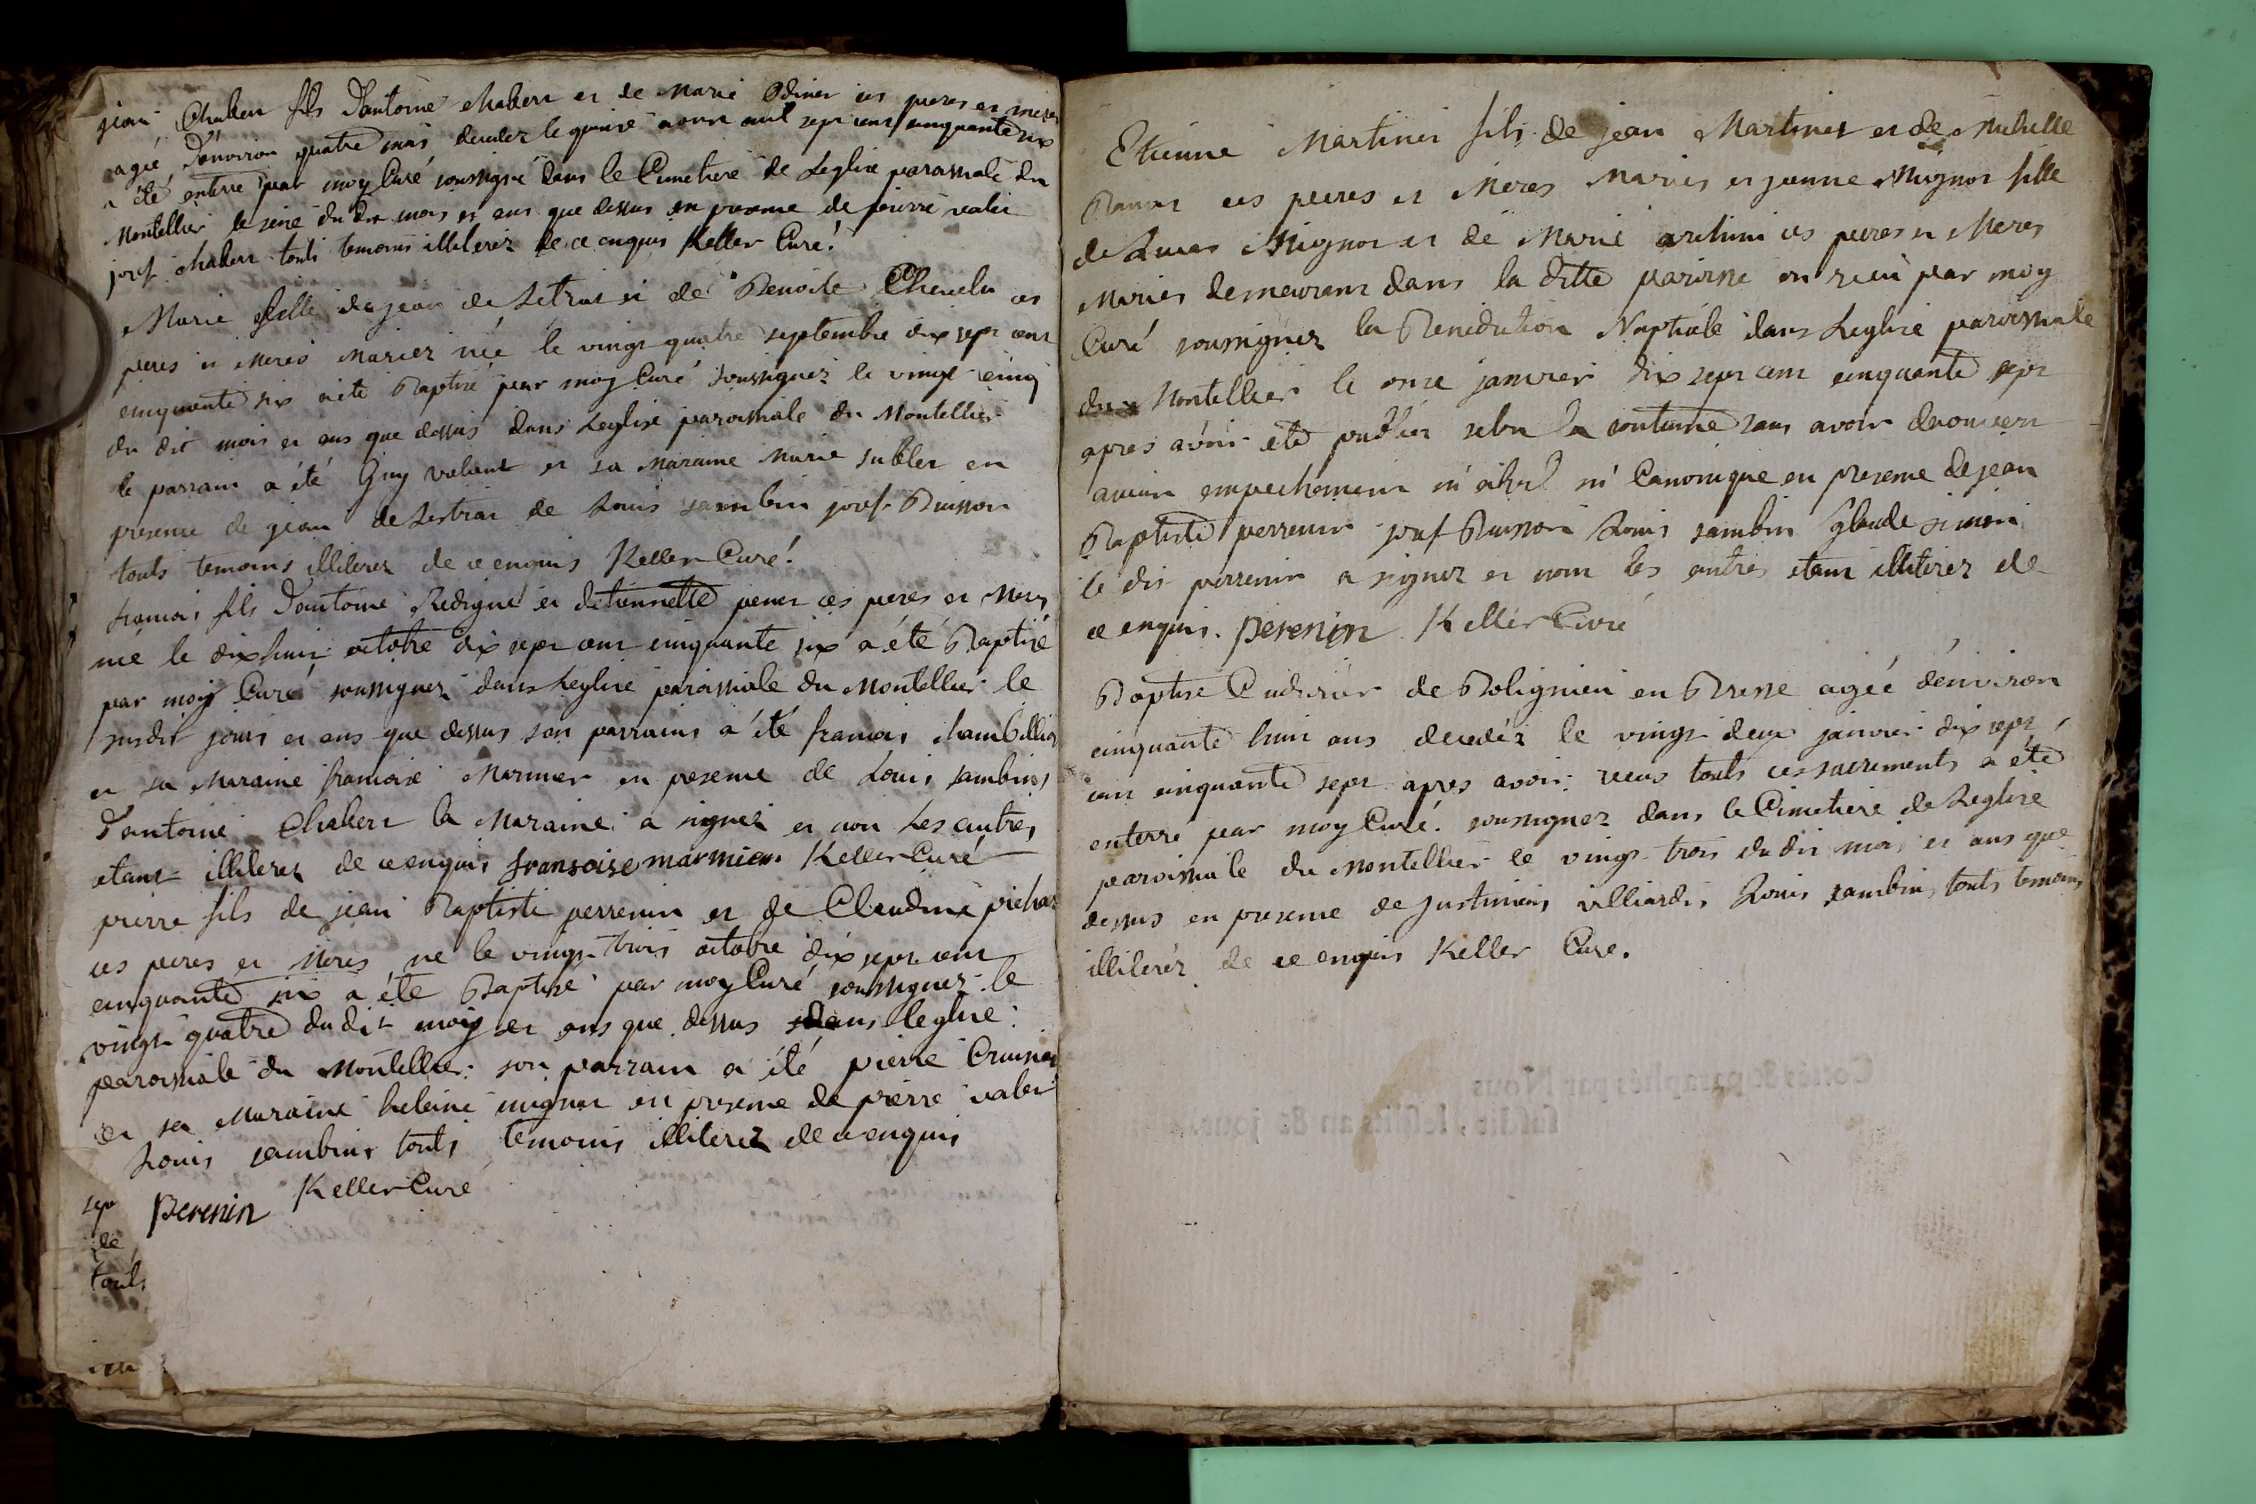 jean Chabert fils d'antoine chabert et de marie Odinet ces peres et meres
agée d'environ quatre mois decedez le quinze aoust mil sept cent cinquante six
a été enterre par moy Curé soussigné dans le Cimetiere de Leglise paroissiale du
Montellier le seize du dit mois et ans que dessus en presence de pierre valet
josef chabert touts temoins illiterez de ce enquis Keller Curé.
Marie fille de jean de Letrat et de Benoite Chevelu ces
peres et Meres Mariez née le vingt quatre septembre dix sept cent
cinquante six a été Baptisé par moy Curé soussignez le vingt cinq
du dit mois et ans que dessus dans Leglise paroissiale du Montellier
le parrain a été Guy valant et sa Maraine Marie sublet en
presence de jean de Lestrat de Louis jambin josef Buisson
touts temoins illiterez de ce enquis Keller Curé.
francois fils d'antoine Redigué et detiennette ces peres et Meres
né le dix huit octobre dix sept cent cinquante six a été Baptisé
par moy Curé soussignez dans Leglise paroissiale du Montellier le
susdit jours et ans que dessus son parrains a été francois chambellier
et sa Maraine francoise Marmier en presence de Louis jambins
d'antoine Chabert la Maraine a signez et non Les autres
etant illiterez de ce enquis fransoise marmier Keller Curé
pierre fils de jean Baptiste perrenin et de Claudine pichat
ces peres et Meres ne le vingt trois octobre dix sept cent
cinquante six a éte Baptisé par moy Curé soussignez le
vingt quatre du dit moy et ans que dessus dans leglise
paroissiale du Montellier son parrain a été pierre
et sa Maraine heleine mignot en presence de pierre valet
Louis jambins touts temoins illiterez de ce enquis
Perenin Keller Curé
sept
de
touts
Etienne Martinet fils de jean Martinet et de Michelle
ces peres et Meres Mariés et jeanne Mignot fille
de Mignot et de Marie ces peres et Meres
Mariés demeurant dans la ditte paroisse on recu par moy
Curé soussignez la Benediction Nuptiale dans Leglise paroissiale
du Montellier le onze janvier dix sept cent cinquante sept
apres avoir été publiez selon la coutume sans avoir decouvert
aucun empechement ni civil ni Canonique en presence de jean
Baptiste perrenin josef Buisson Louis jambin Glaude simon
le dit perrenin a signez et nom les autres etant illiterez de
ce enquis. Perenin Keller Curé
Baptise de Bolignieu en Bresse agéé d'environ
cinquante huit ans decedéz le vingt deux janvier dix sept
cent cinquante sept apres avoir recus touts ces sacrements a été
enterré par moy Curé soussignez dans le Cimetiere de Leglise
paroissiale du Montellier le vingt trois du dit mois et ans que
dessus en presence de justiniens villiardis Louis jambins touts temoins
illiteréz de ce enquis Keller Curé.